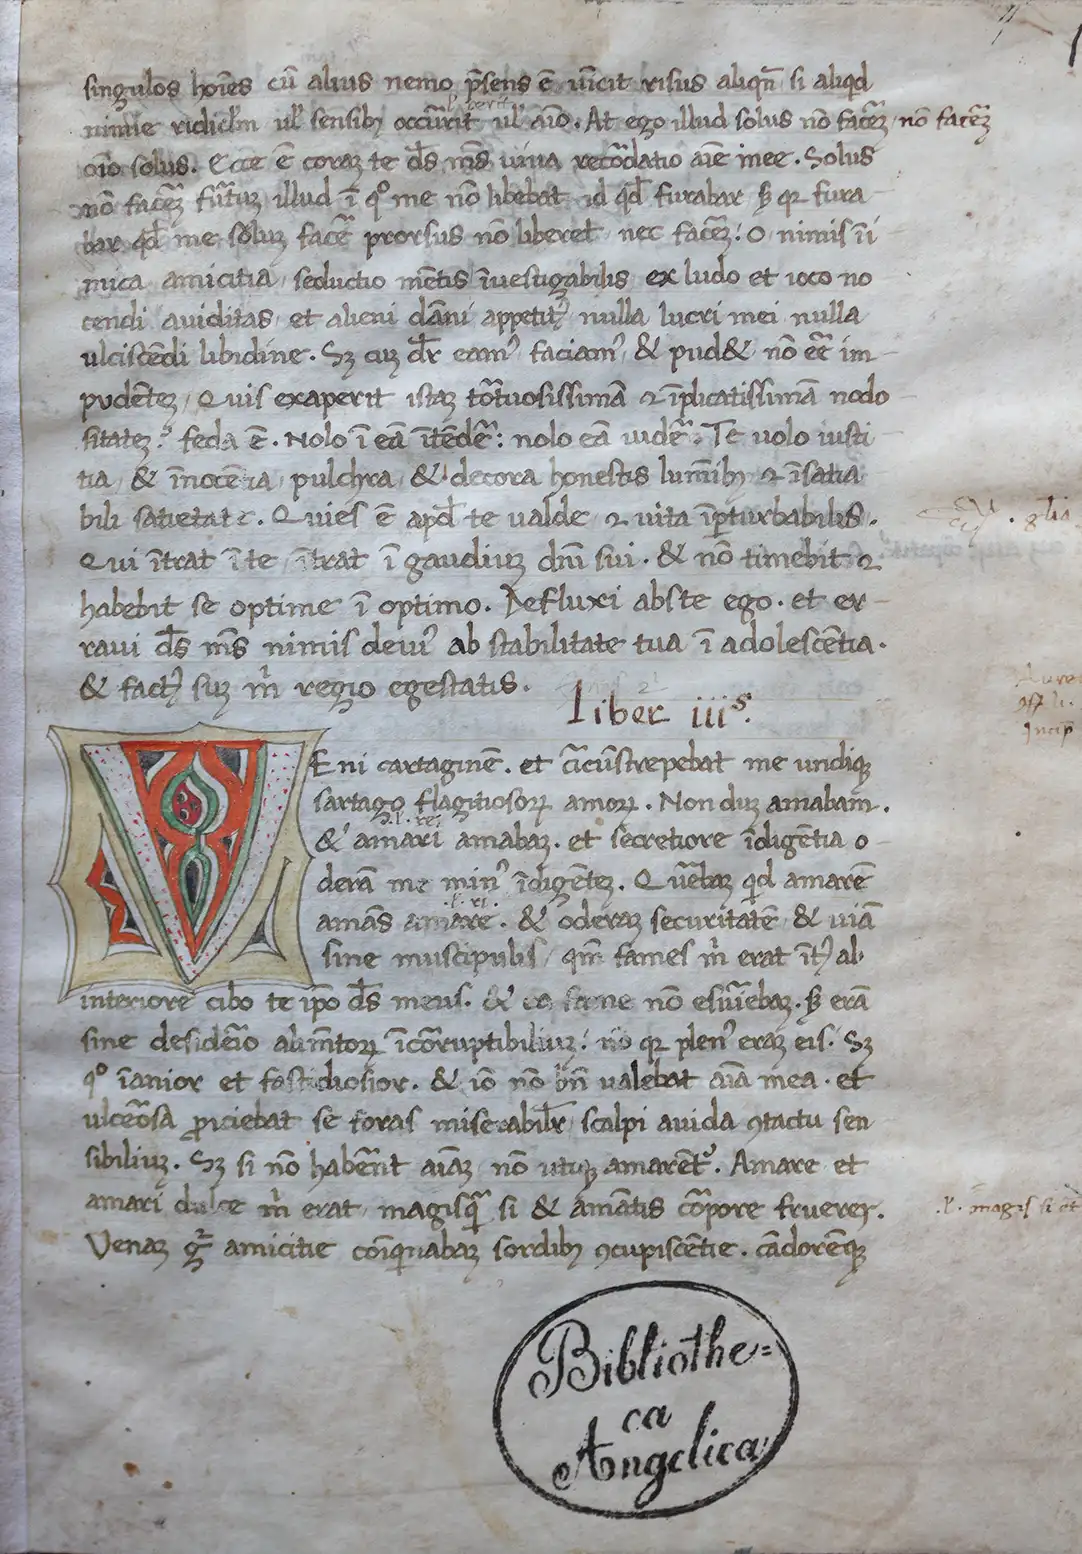 singulos hoīes cū alius nemo p̄sens ē uīcit risus aliqñ si aliqd
nimie ridicl'm ul' sensibȝ occūrit ul' aīo. At ego illud solus nō facēȝ nō facēȝ
l' berit
oīo solus. Ecce ē coraȝ te dˢ mˢ uiua recōdatio aīe mee. Solus
nō facēȝ fūtuȝ illud ī qº me nō libebat id qđ furabar sȝ qꝛ fura
bar qđ me soluȝ facē prorsus nō liberet nec facēȝ. O nimis īi
mica amicitia seductio mētis īuestigabilis ex ludo et ioco no
cendi auiditas et alieni dāni appetitꝰ nulla lucri mei nulla
ulciscēdi libidine. Sȝ cuȝ dr̄ eamꝰ faciamꝰ & pud& nō eē im
pudēteȝ. Quis exaperit istaȝ tōtuosissimā ⁊ īplicatissimā nodo
sitateȝ? feda ē. Nolo ī eā ītēdē: nolo eā uidē. Te uolo iusti
tia & īnocētia pulchra & decora honestis lumībȝ ⁊ īsatia
bili satietate. Quies ē apđ te ualde ⁊ uita īpturbabilis.
glīa
Qui ītrat ī te ītrat ī gaudiuȝ dñi sui. & nō timebit ⁊
habebit se optime ī optimo. Defluxi abste ego. et er
raui dˢ mˢ nimis deuiꝰ ab stabilitate tua ī adolescētia.
& factꝰ suȝ m̄ regio egestatis.
Liber iiiˢ.
Incip
VEni cartaginē. et cīcūstrepebat me undiqȝ
sartago flagitiosoꝝ amoꝝ. Non duȝ amabam.
l. rei
& amari amabaȝ. et secretiore īdigētia o
derā me minꝰ īdigēteȝ. Quēbaȝ qđ amarē
l. ri
amās amare. & oderaȝ securitatē & uiā
sine muscipulis qm̄ fames m̄ erat ītꝰ ab
interiore cibo te ip̄o dˢ meus. & ea fame nō esuīebaȝ. sȝ erā
sine desidēio alimētoꝝ īcōruptibiliuȝ: nō qꝛ plenꝰ eraȝ eis. Sȝ
qº īanior et fastidiosior. & iō nō bñ ualebat aīa mea. et
ulcēosa ꝓiciebat se foras miserabilr̄ scalpi auida ꝯtactu sen
sibiliuȝ. Sȝ si nō habēnt aīaȝ nō utiqȝ amarēt᷑. Amare et
amari dulce m̄ erat magisq̄ si & amātis cōpore fruereȝ.
l. magis si et
Venaȝ gͦ amicitie coīquiabaȝ sordibȝ ꝯcupiscētie. cādorēqȝ
Bibliothe=
ca
Angelica